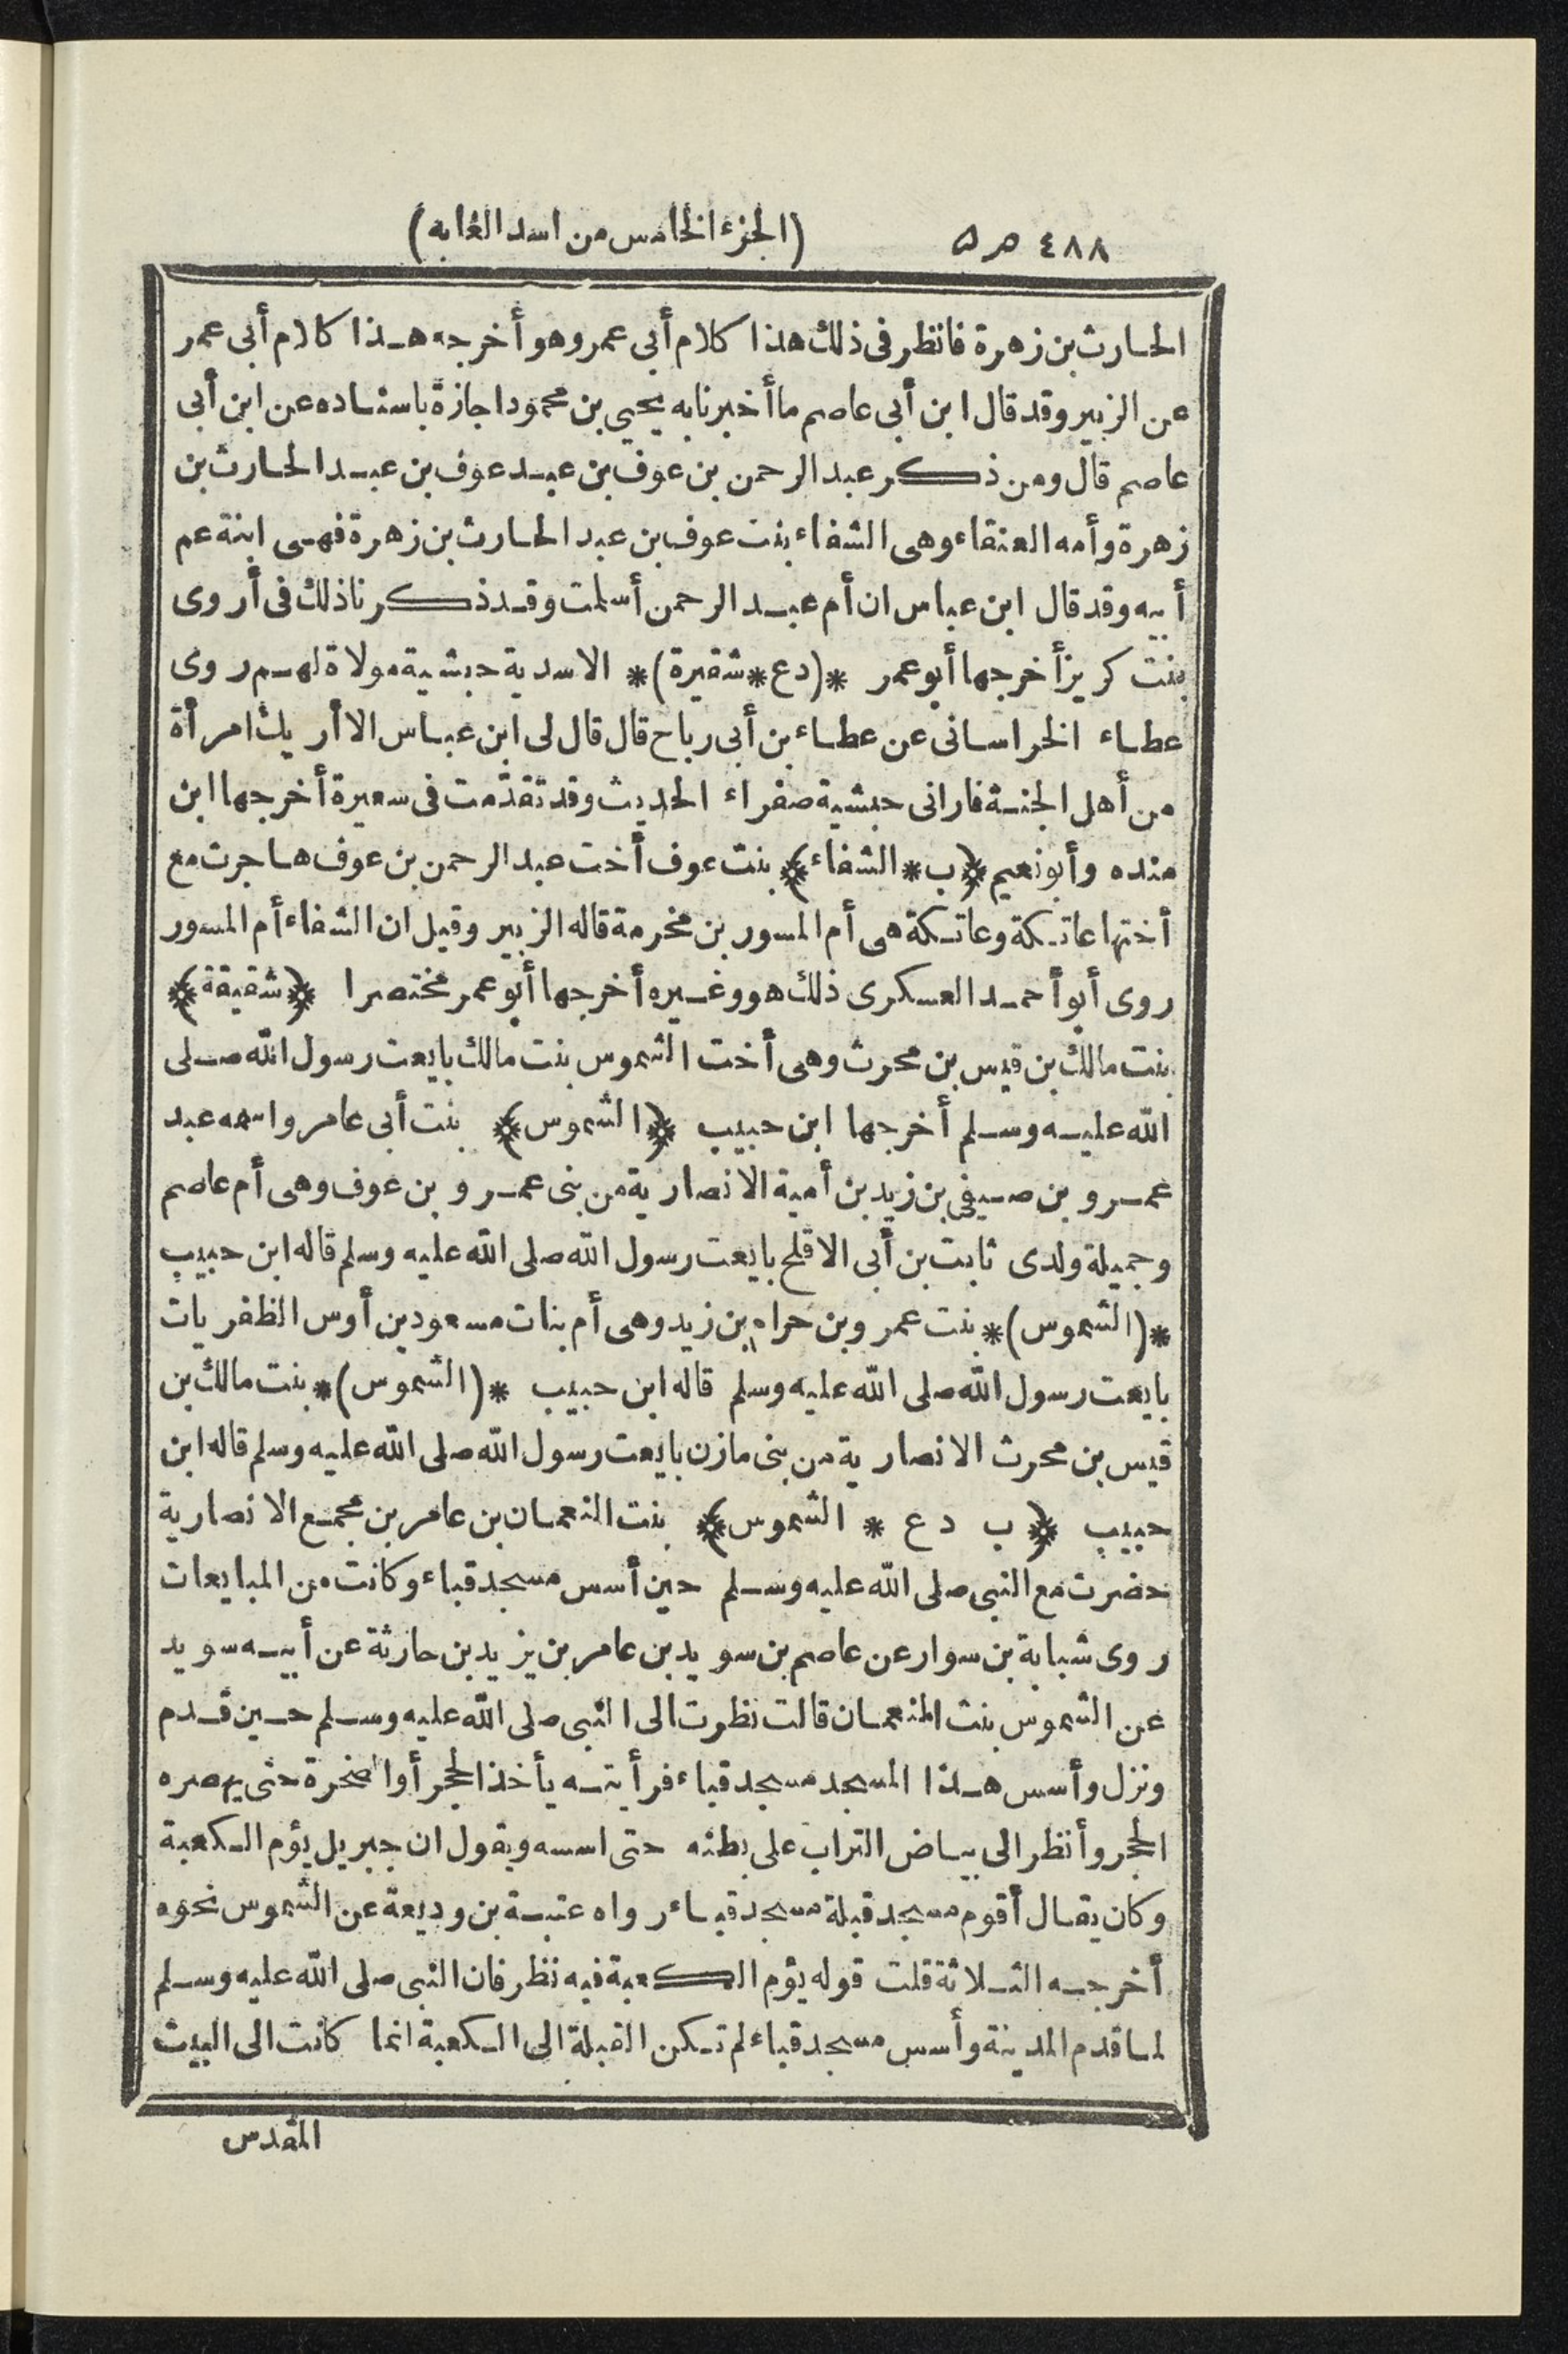 ٤٨٨ ص ٥
(الجزء الخامس من اسد الغابه)
الحارث بن زهرة فانظر فى ذلك هذا كلام أبى عمر وهو أخرجه هذا كلام أبى عمر
عن الزبير وقد قال ابن أبى عاصم ما أخبرنا به يحيى بن محمود اجازة باسناده عن ابن أبى
عاصم قال ومن ذكر عبد الرحمن بن عوف بن عبد عوف بن عبد الحارث بن
زهرة وأمه العنقاء وهى الشفاء بنت عوف بن عبد الحارث بن زهرة فهى ابنة عم
أبيه وقد قال ابن عباس ان أم عبد الرحمن أسلمت وقد ذكرنا ذلك فى أروى
بنت كريز أخرجها أبو عمر *(دع * شقيرة)* الاسدية حبشية مولاة لهم روى
عطاء الخراسانى عن عطاء بن أبى رباح قال قال لى ابن عباس الا أريك امرأة
من أهل الجنة فارانى حبشية صفراء الحديث وقد تقدّمت فى سعيرة أخرجها ابن
منده وأبو نعيم ﴿ب * الشفاء﴾ بنت عوف أخت عبد الرحمن بن عوف هاجرت مع
أختها عاتكة وعاتكة هى أم المسور بن مخرمة قاله الزبير وقيل ان الشفاء أم المسور
روى أبو أحمد العسكرى ذلك هو وغيره أخرجها أبو عمر مختصرا ﴿شقيقة﴾
بنت مالك بن قيس بن محرث وهى أخت الشموس بنت مالك بايعت رسول الله صلى
الله عليه وسلم أخرجها ابن حبيب ﴿الشموس﴾ بنت أبى عامر واسمه عبد
عمرو بن صيفى بن زيد بن أمية الانصارية من بنى عمرو بن عوف وهى أم عاصم
وجميلة ولدى ثابت بن أبى الاقلح بايعت رسول الله صلى الله عليه وسلم قاله ابن حبيب
*(الشموس)* بنت عمرو بن حرام بن زيد وهى أم بنات مسعود بن أوس الظفريات
بايعت رسول الله صلى الله عليه وسلم قاله ابن حبيب *(الشموس)* بنت مالك بن
قيس بن محرث الانصارية من بنى مازن بايعت رسول الله صلى الله عليه وسلم قاله ابن
حبيب ﴿ب دع * الشموس﴾ بنت النعمان بن عامر بن مجمع الانصارية
حضرت مع النبى صلى الله عليه وسلم حين أسس مسجد قباء وكانت من المبايعات
روى شبابة بن سوار عن عاصم بن سويد بن عامر بن يزيد بن حارثة عن أبيه سويد
عن الشموس بنت النعمان قالت نظرت الى النبى صلى الله عليه وسلم حين قدم
ونزل وأسس هذا المسجد مسجد قباء فرأيته يأخذ الحجر أو الصخرة حتى يهصره
الحجر وأنظر الى بياض التراب على بطنه حتى اسسه ويقول ان جبريل يؤم الكعبة
وكان يقال أقوم مسجد قبلة مسجد قباء رواه عتبة بن وديعة عن الشموس نحوه
أخرجه الثلاثة قلت قوله يؤم الكعبة فيه نظر فان النبى صلى الله عليه وسلم
لما قدم المدينة وأسس مسجد قباء لم تكن القبلة الى الكعبة انما كانت الى البيت
المقدس